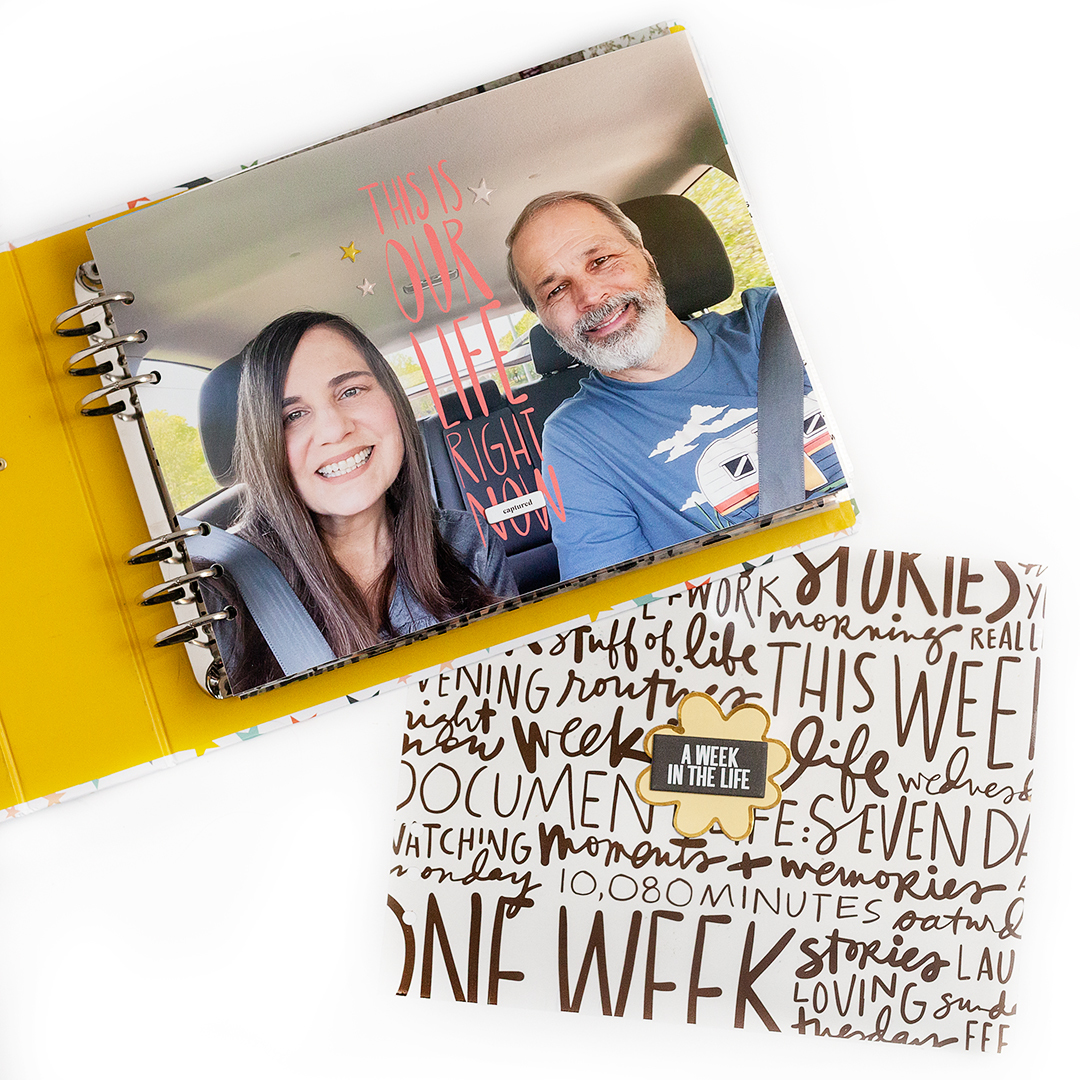 THIS IS
OUR
LIFE
RIGHT
NOW
captured
WORK STORIES
stuff of life morning REALL
EVENING routines THIS WEE
right
now Week life wednesd
A WEEK
IN THE LIFE
DOCUMEN IFE: SEVEN DA
WATCHING moments + memories
monday 10,080 MINUTES saturd
ONE WEEK stories LAU
LOVING sunda
tuesday